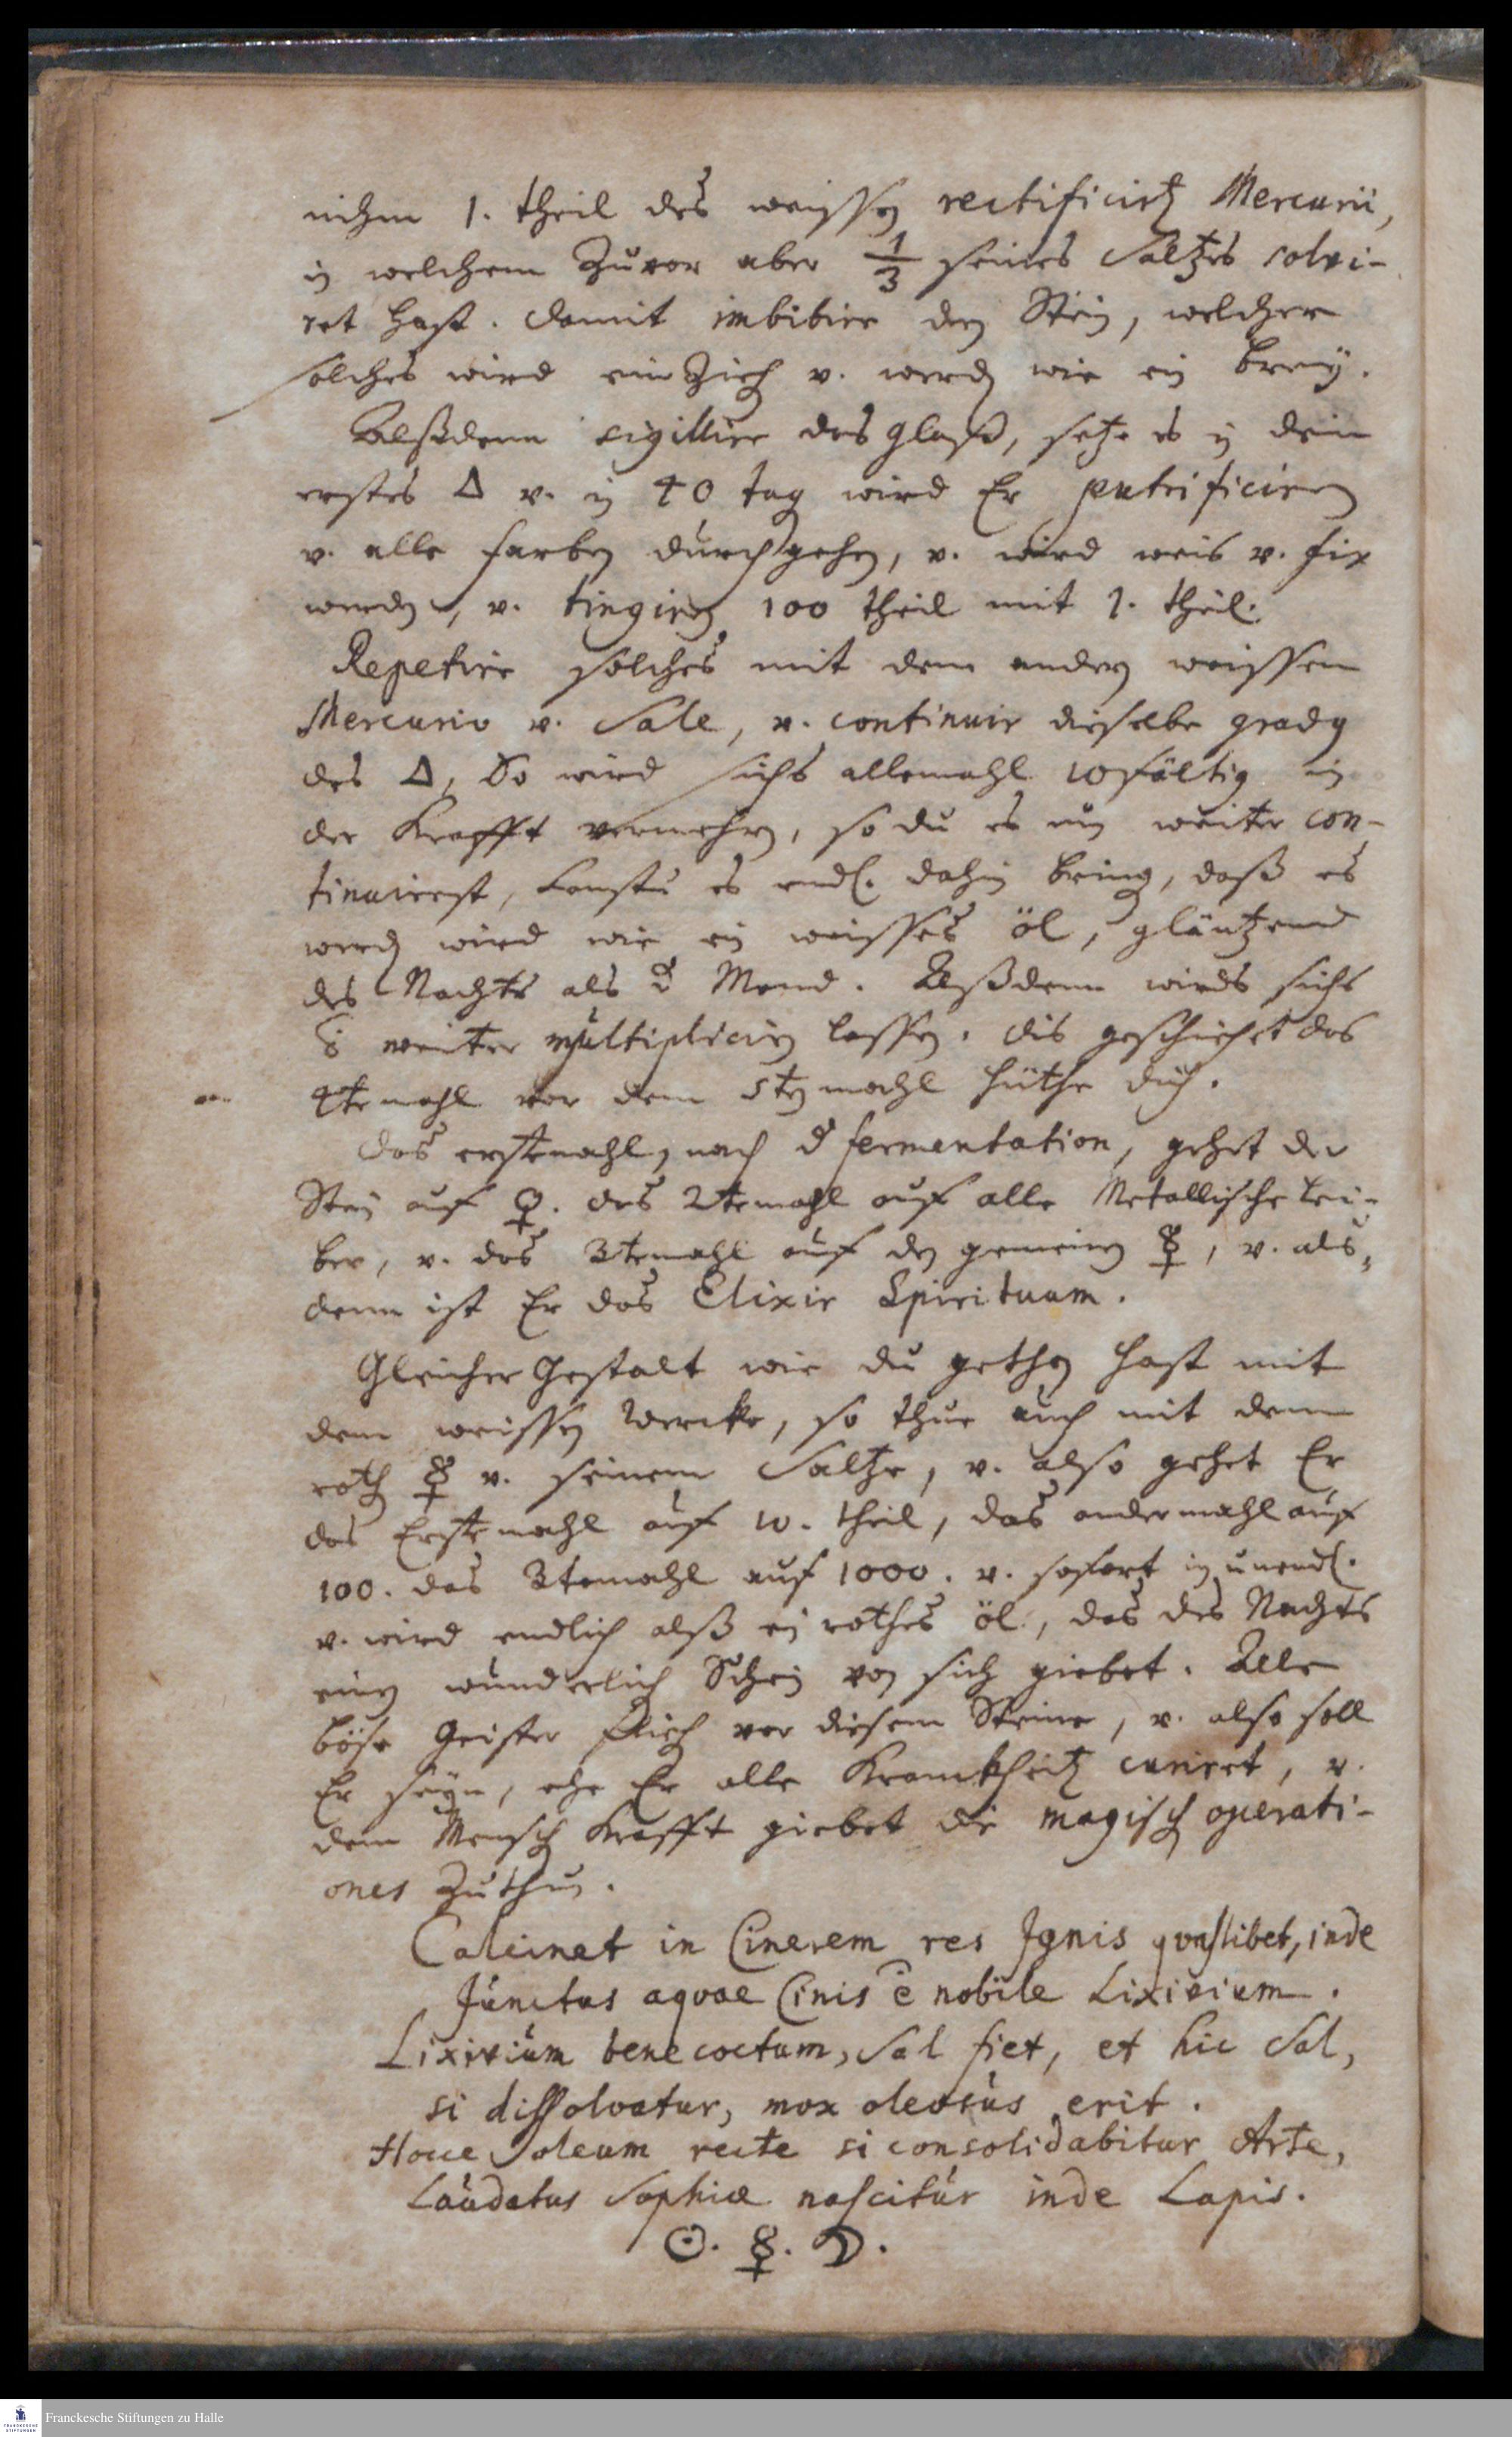 nihm 1. theil des weissen rectificirten Mercurii,
in welchem Zuvor aber 1/3 seines Saltzes solvi-
ret hast. damit imbibire den Stein, welcher
solches wird einZiehen v. werden wie ein brey.
Alßdenn sigillire das glaß, setze es in dein
erstes 🜂 v. in 40 tag wird Er putrificiren
v. alle farben durchgehen, v. wird weis v. fix
werden, v. tingiren 100 theil mit 1. theil.
Repetire solches mit dem andern weissen
Mercurio v. Sale, v. continuir dieselbe graden
des 🜂, So wird sichs allemahl 10fältig in
der Krafft vermehren, so du es nun weiter con-
tinuirest, kanstu es endl. dahin bringen, daß es
werden wird wie ein weisses öl, gläntzend
des Nachts als d Mond. Alßdenn wirds sichs
weiter multipliciren lassen. dis geschiehet das
4te mahl vor dem 5ten mahl hüthe dich.
das erstemahl, nach d fermentation, gehet der
Stein auf ♀. das 2temahl auf alle Metallische Lei-
ber, v. das 3temahl auf den gemeinen ☿, v. als-
denn ist Er das Elixir Spirituum.
Gleicher Gestalt wie du gethan hast mit
dem weissen Wercke, so thue auch mit dem
rothen ☿ v. seinem Saltze, v. also gehet Er
das Erstemahl auf 10. theil, das andermahl auf
100. das 3temahl auf 1000. v. sofort in unendl.
v. wird endlich alß ein rothes öl, das des Nachts
einen wunderlich Schein von sich giebet. Alle
böse Geister fliehen vor diesem Steine, v. also soll
Er seyn, ehe Er alle Kranckheiten curiret, v.
dem Menschen Krafft giebet die magischen operati-
ones Zuthun.
Calcinet in Cinerem res Ignis qvaslibet, inde
Junctus aqvae Cinis ē nobile Lixivium.
Lixivium bene coctum, Sal fiet, et hic Sal,
si dissolvatur, mox oleosus erit.
Hocce oleum recte si consolidabitur Arte,
Laudatus Sophiæ nascitur inde Lapis.
☉. ☿. ☽.
Franckesche Stiftungen zu Halle